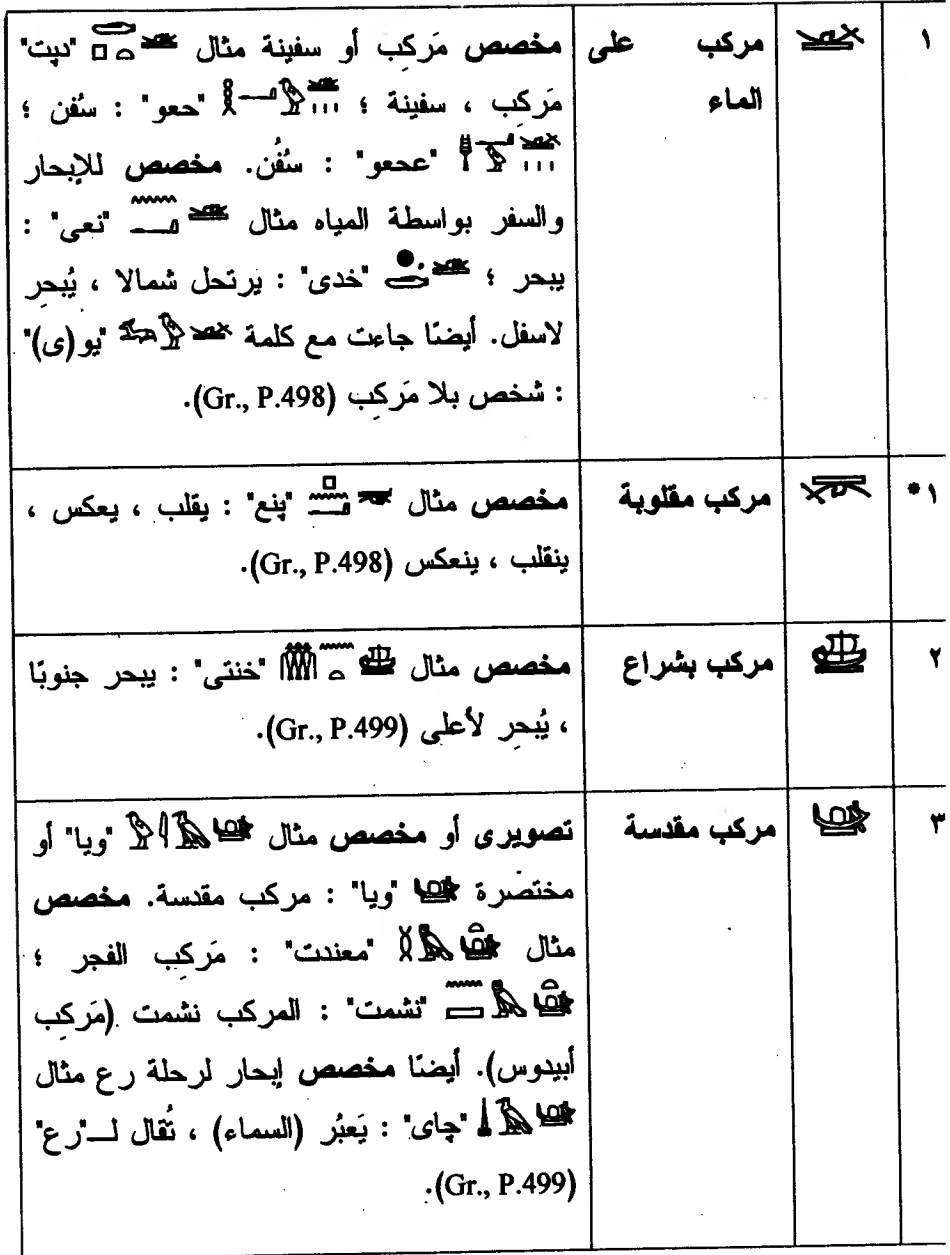 ١ مركب على مخصص مَركِب أو سفينة مثال "دپت"
الماء مَركِب ، سفينة ؛ "حعو" : سُفن ؛
"عحعو" : سُفُن. مخصص للإبحار
والسفر بواسطة المياه مثال "نعى" :
يبحر ؛ "خدى" : يرتحل شمالا ، يُبحر
لاسفل. أيضًا جاءت مع كلمة "يو(ى)"
: شخص بلا مَركِب (Gr., P.498).
١* مركب مقلوبة مخصص مثال "پنع" : يقلب ، يعكس ،
ينقلب ، ينعكس (Gr., P.498).
٢ مركب بشراع مخصص مثال "خنتى" : يبحر جنوبًا
، يُبحِر لأعلى (Gr., P.499).
٣ مركب مقدسة تصويرى أو مخصص مثال "ويا" أو
مختصرة "ويا" : مركب مقدسة. مخصص
مثال "معندت" : مَركِب الفجر ؛
"نشمت" : المركب نشمت (مَركِب
أبيدوس). أيضًا مخصص إبحار لرحلة رع مثال
"چاى" : يَعبُر (السماء) ، تُقال لــ"رع"
(Gr., P.499).